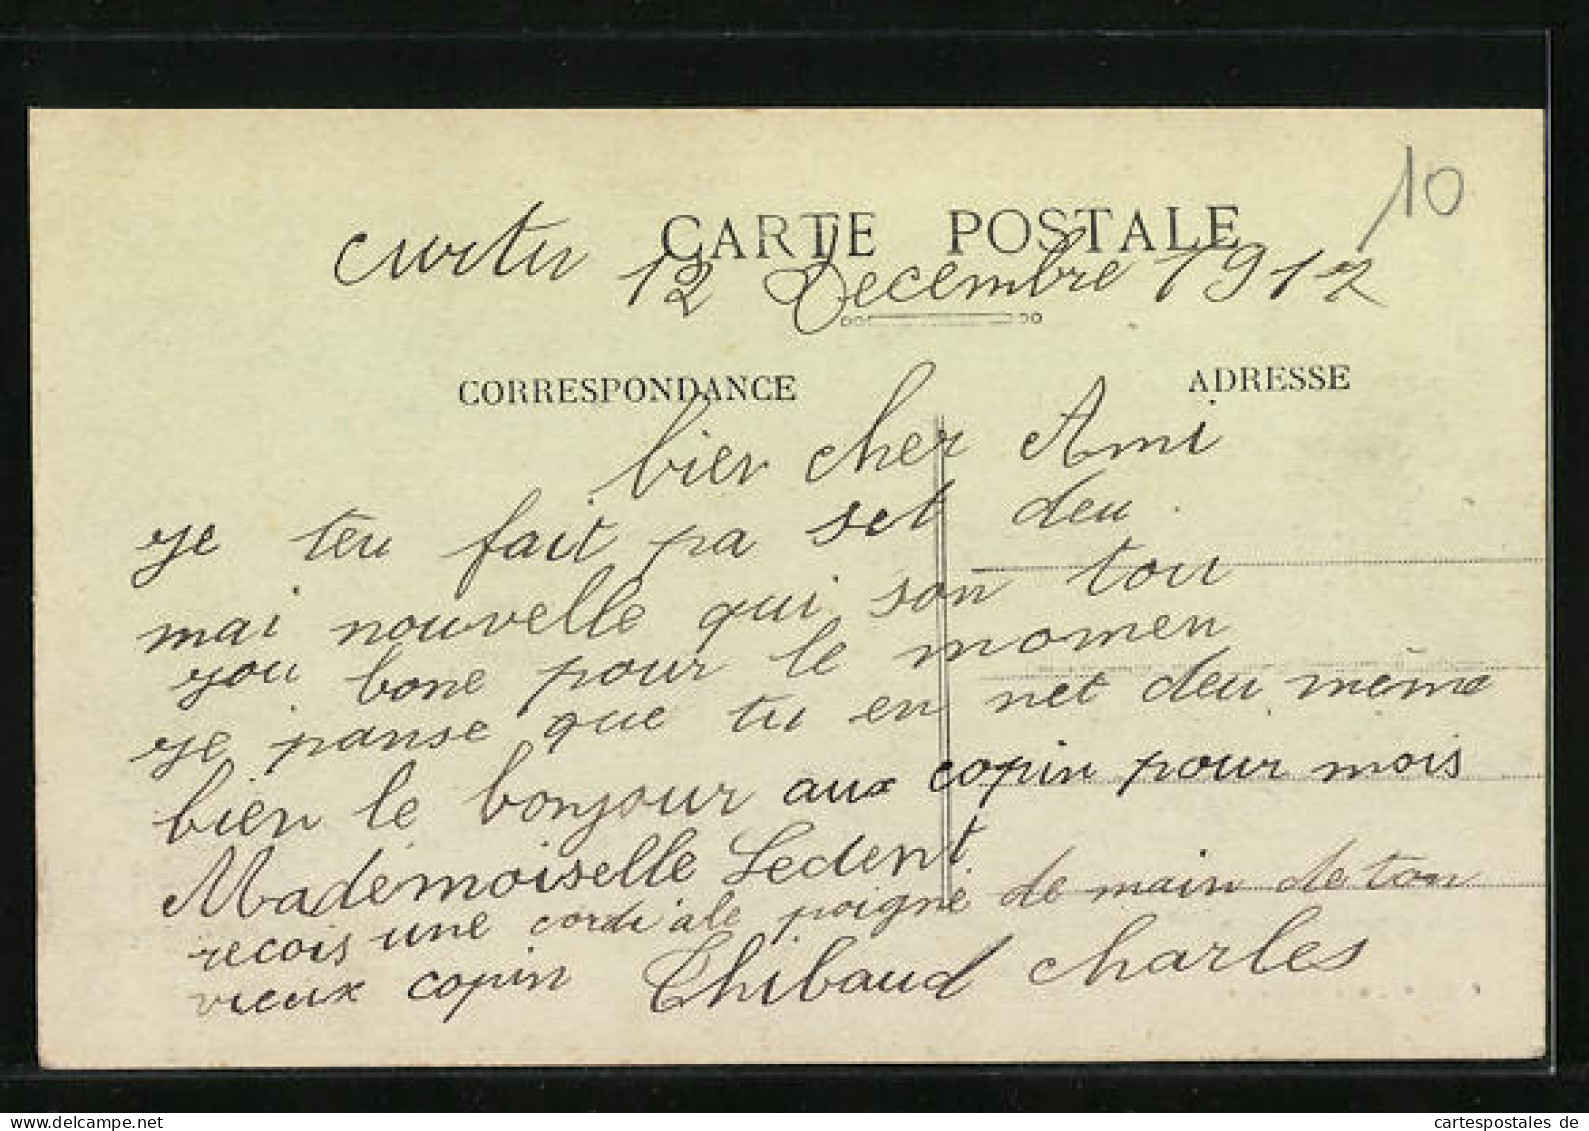 10
CARTE POSTALE
Curtu 12 Decembre 1912
CORRESPONDANCE
ADRESSE
bien cher Ami
je teu fait pa set deu
mai nouvelle qui son tou
jou bone pour le momen
je panse que tu en net deu même
bien le bonjour aux copin pour mois
Mademoiselle Ledent
recois une cordiale poigné de main de ton
vieux copin Thibaud Charles
www.delcampe.net
cartespostales de